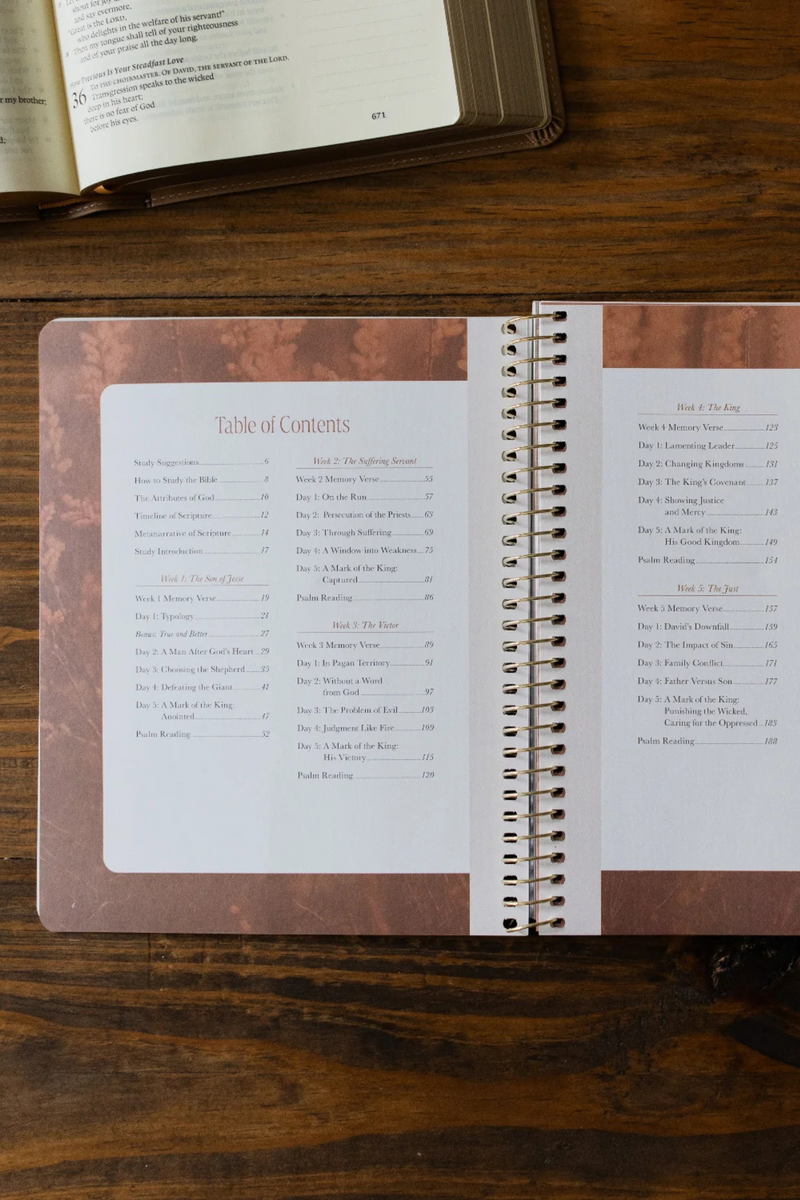 shout for joy and
and say evermore,
"Great is the LORD,
who delights in the welfare of his servant!"
Then my tongue shall tell of your righteousness
and of your praise all the day long.
How Precious Is Your Steadfast Love
36 TO THE CHOIRMASTER. OF DAVID, THE SERVANT OF THE LORD.
Transgression speaks to the wicked
deep in his heart;
there is no fear of God
before his eyes.
671
r my brother;
Table of Contents
Study Suggestions 6
How to Study the Bible 8
The Attributes of God 10
Timeline of Scripture 12
Metanarrative of Scripture 14
Study Introduction 17
Week 1: The Son of Jesse
Week 1 Memory Verse 19
Day 1: Typology 21
Bonus: True and Better 27
Day 2: A Man After God's Heart 29
Day 3: Choosing the Shepherd 35
Day 4: Defeating the Giant 41
Day 5: A Mark of the King:
Anointed 47
Psalm Reading 52
Week 2: The Suffering Servant
Week 2 Memory Verse 55
Day 1: On the Run 57
Day 2: Persecution of the Priests 63
Day 3: Through Suffering 69
Day 4: A Window into Weakness 75
Day 5: A Mark of the King:
Captured 81
Psalm Reading 86
Week 3: The Victor
Week 3 Memory Verse 89
Day 1: In Pagan Territory 91
Day 2: Without a Word
from God 97
Day 3: The Problem of Evil 103
Day 4: Judgment Like Fire 109
Day 5: A Mark of the King:
His Victory 115
Psalm Reading 120
Week 4: The King
Week 4 Memory Verse 123
Day 1: Lamenting Leader 125
Day 2: Changing Kingdoms 131
Day 3: The King's Covenant 137
Day 4: Showing Justice
and Mercy 143
Day 5: A Mark of the King:
His Good Kingdom 149
Psalm Reading 154
Week 5: The Just
Week 5 Memory Verse 157
Day 1: David's Downfall 159
Day 2: The Impact of Sin 165
Day 3: Family Conflict 171
Day 4: Father Versus Son 177
Day 5: A Mark of the King:
Punishing the Wicked,
Caring for the Oppressed 183
Psalm Reading 188